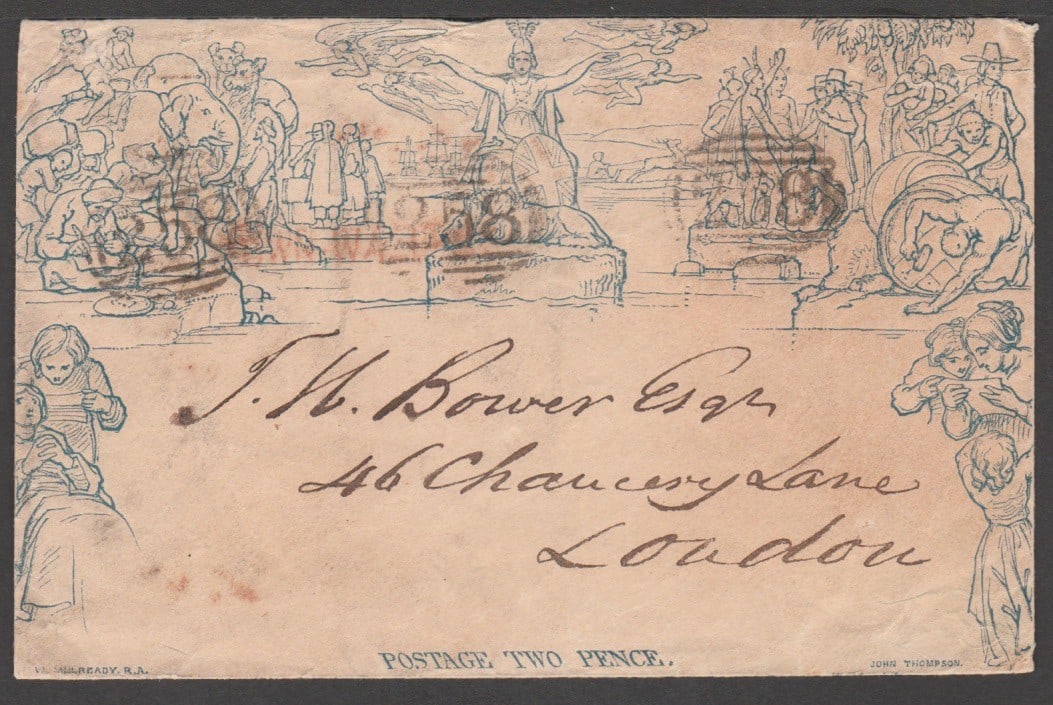 258
258
8
T. H. Bower Esqr
46 Chancery Lane
London
POSTAGE TWO PENCE.
W. MULREADY. R.A.
JOHN THOMPSON.